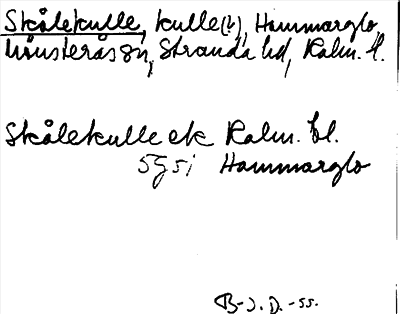 Skålekulle, kulle(?), Hammarglo
Mönsterås sn, Stranda hd, Kalm. l.
Skålekulle ek Kalm. bl.
5g5i Hammarglo
B-J. D. -55.